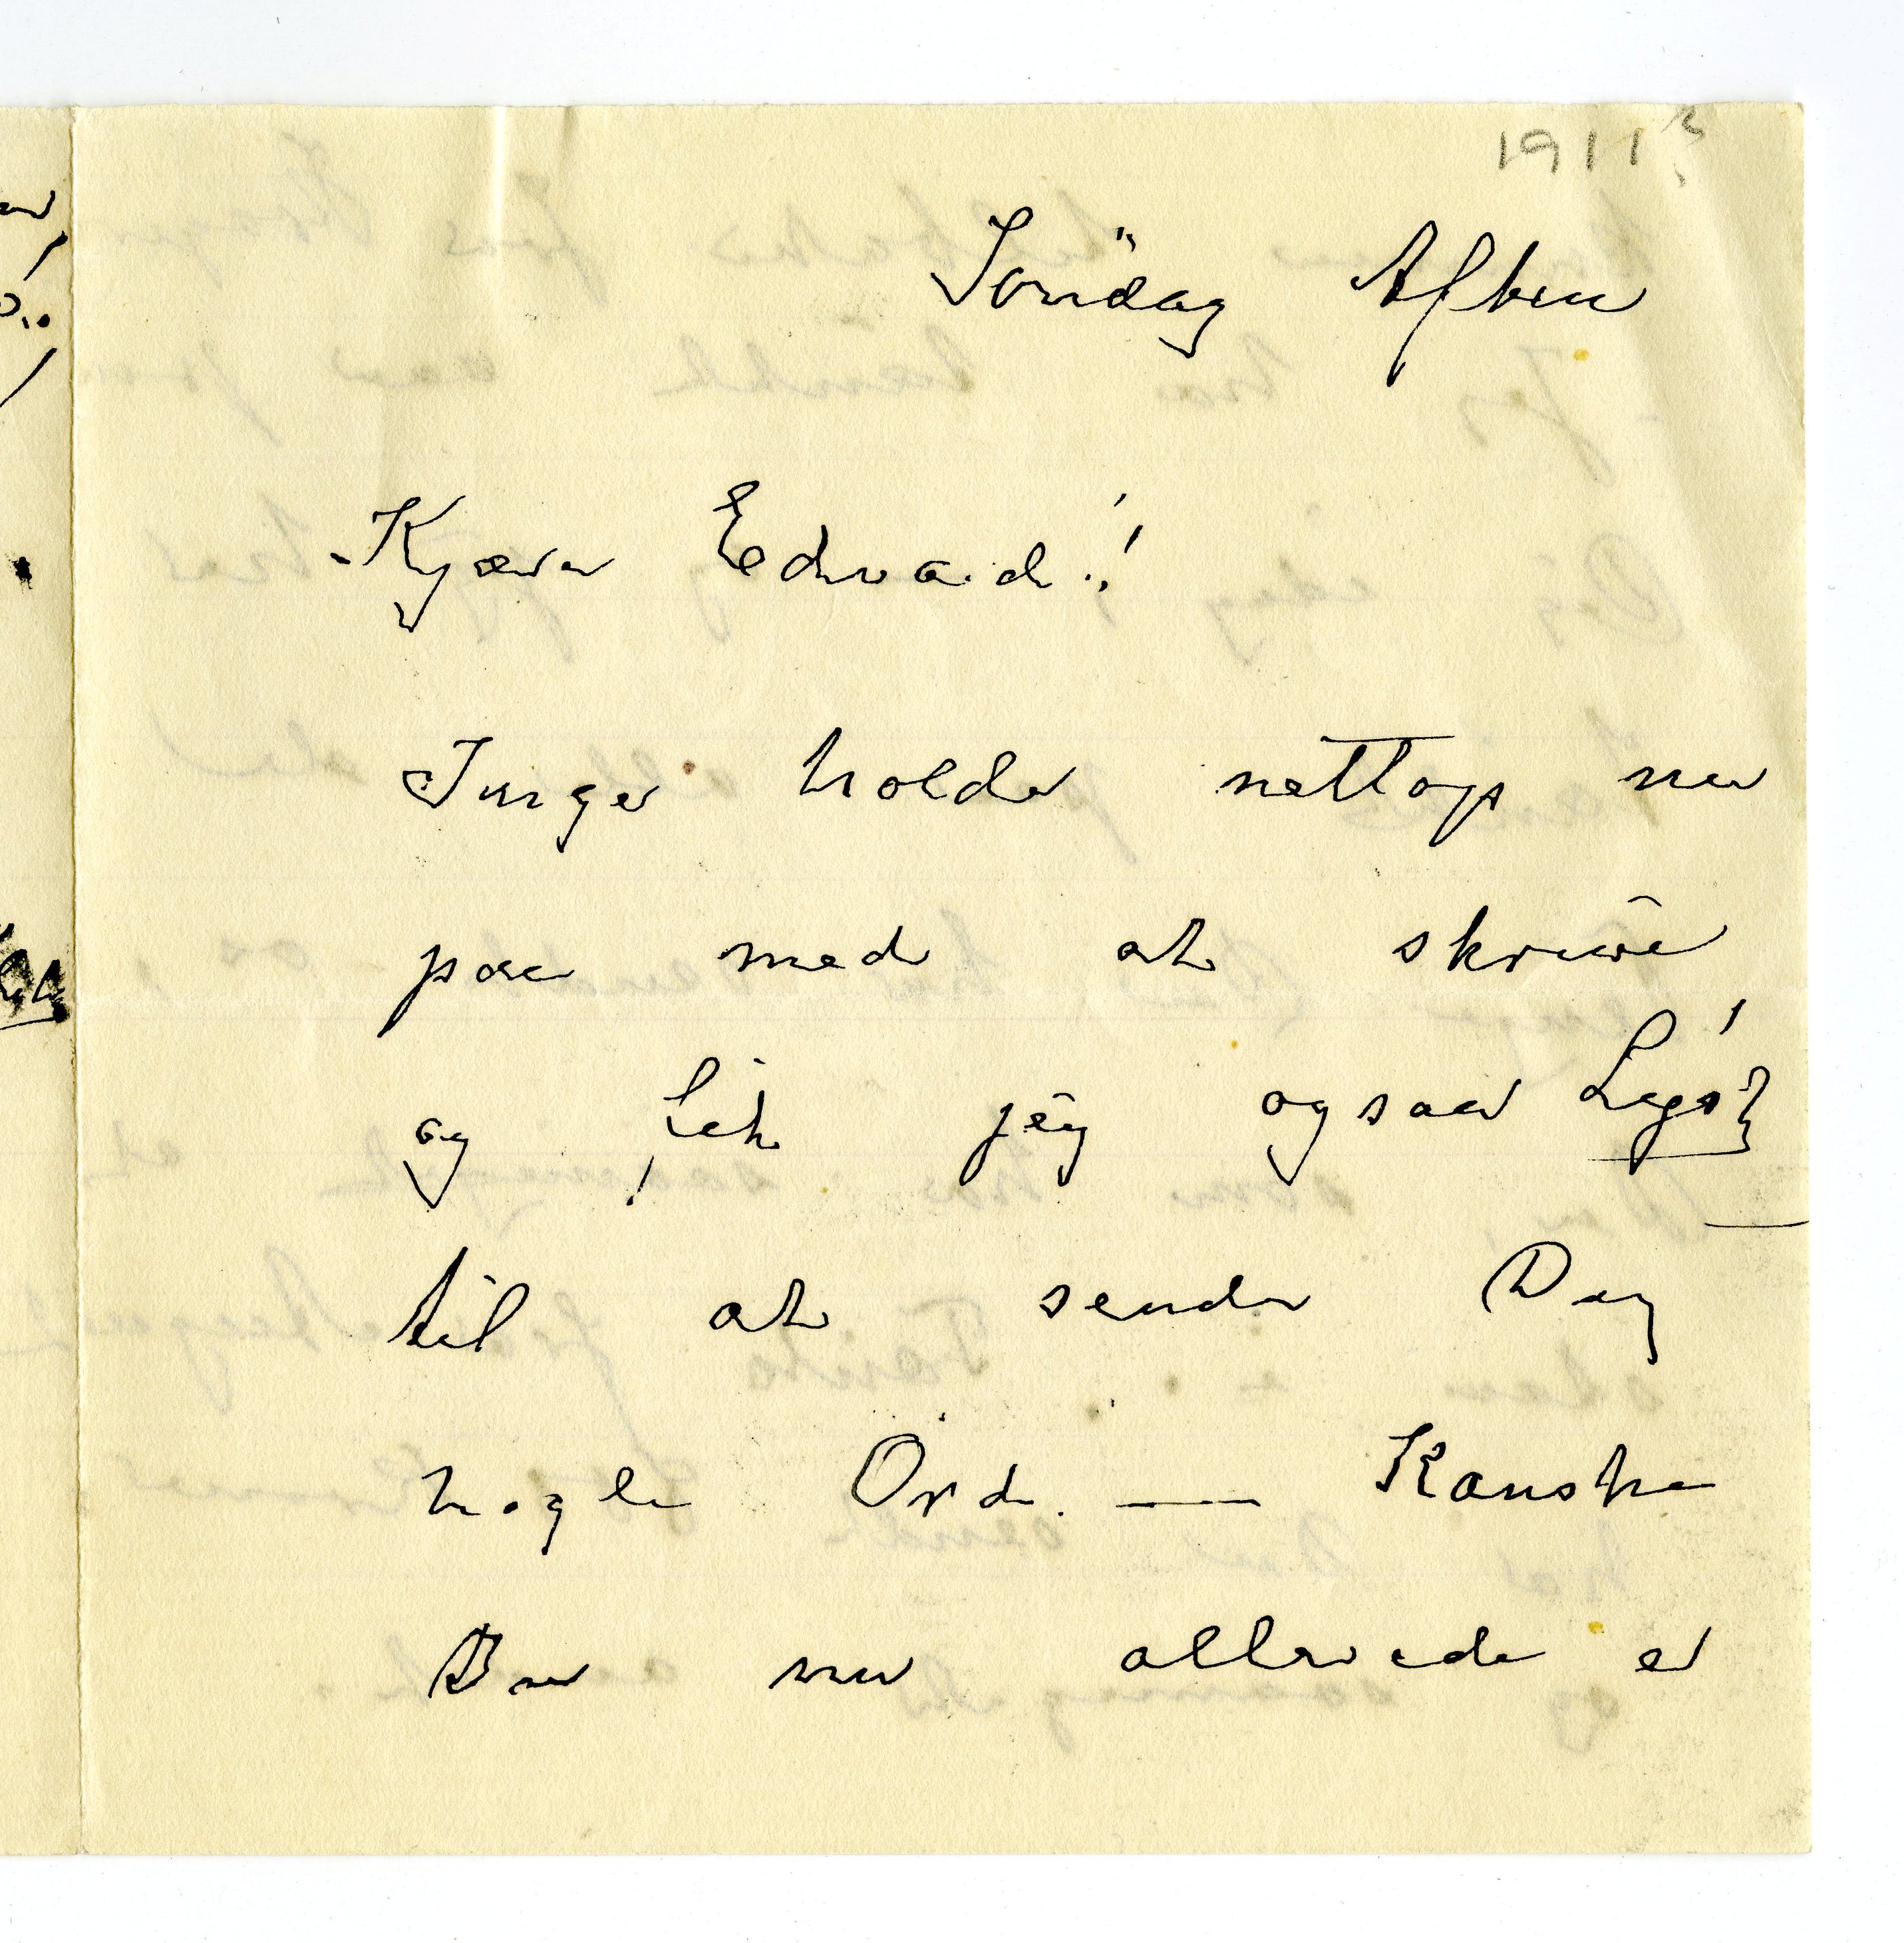 1911?
Söndag Aften
Kjære Edvard!
Inger holder nettop nu
paa med at skrive
og fik jeg ogsaa Lyst
til at sende Dig
nogle Ord. — Kanske
Du nu allerede er